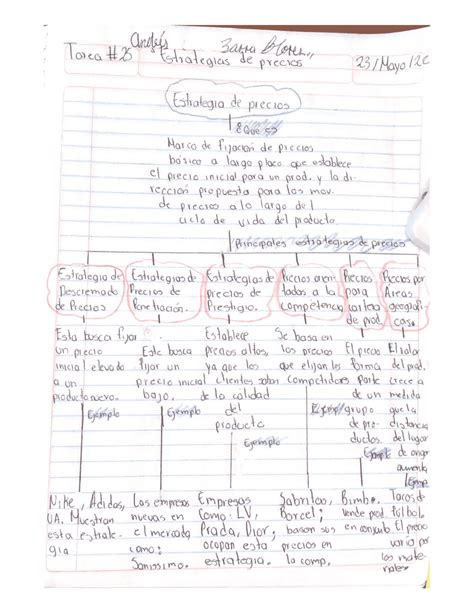 Andrés Zarra Flores
Tarea #25 Estrategias de precios 23/Mayo/20
Estrategia de precios
¿Que es?
Marco de fijación de precios
básico a largo plazo que establece
el precio inicial para un prod. y la di-
rección propuesta para los mov.
de precios a lo largo del
ciclo de vida del producto.
Principales estrategias de precios
Estrategia de
Descremado
de Precios
Estrategias de
Precios de
Penetración.
Estrategias de
precios de
Prestigio.
Precios orien-
tados a la
competencia
Precios
para
cartera
de prod.
Precios por
Áreas
geográfi-
cas.
Esta busca fijar
un precio
inicial elevado
a un
producto nuevo.
Ejemplo
Nike, Adidas,
UA. Muestran
esta estrate-
gia
Este busca
fijar un
precio inicial
bajo.
Ejemplo
Las empresas
nuevas en
el mercado
como:
Sanissimo.
Establece
precios altos,
ya que los
clientes saben
de la calidad
del
producto
Ejemplo
Empresas
Como: LV,
Prada, Dior;
ocupan esta
estrategia.
Se basa en
los precios
que elijan los
competidores
Ejempl
Sabritas,
Barcel;
basan sus
precios en
la comp.
El precio
forma
parte
de un
grupo
de pro-
ductos.
Ejemplo
Bimbo.
Vende prod.
en conjunto
El valor
del prod.
crece a
medida
que la
distancia
del lugar
de origen
aumenta
Ejemp
Tacos de
fútbol.
El precio
varía por
los mate-
riales